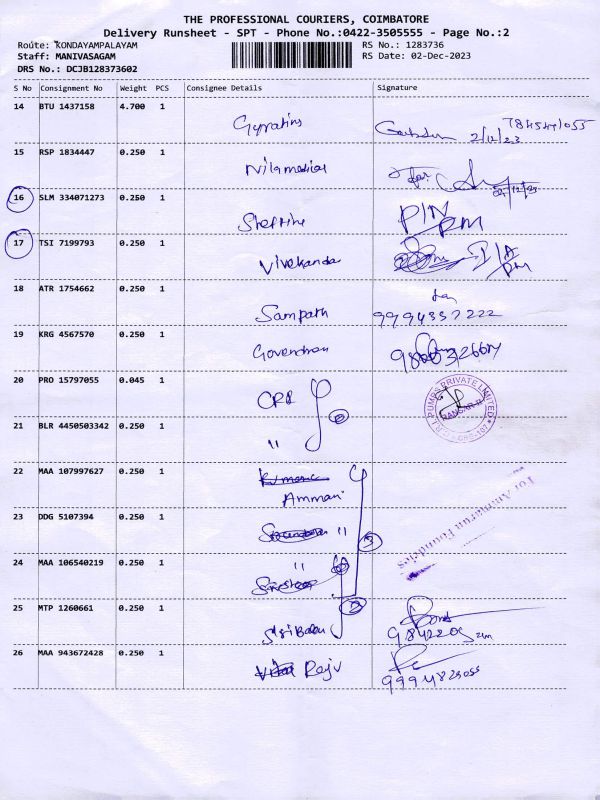 THE PROFESSIONAL COURIERS, COIMBATORE
Delivery Runsheet - SPT - Phone No.:0422-3505555 - Page No.:2
Route: KONDAYAMPALAYAM
RS No.: 1283736
Staff: MANIVASAGAM
RS Date: 02-Dec-2023
DRS No.: DCJB128373602
S No Consignment No Weight PCS Consignee Details Signature
14 BTU 1437158 4.700 1
2/12/23
15 RSP 1834447 0.250 1
16 SLM 334071273 0.250 1
17 TSI 7199793 0.250 1
Vivekanda
18 ATR 1754662 0.250 1
Sampath 9994337222
19 KRG 4567570 0.250 1
20 PRO 15797055 0.045 1
R.I. PUMPS PRIVATE LIMITED
2
21 BLR 4450503342 0.250 1
"
22 MAA 107997627 0.250 1
Amman
23 DDG 5107394 0.250 1
"
3
For Ammarun Foundries
24 MAA 106540219 0.250 1
"
25 MTP 1260661 0.250 1
26 MAA 943672428 0.250 1
Raju